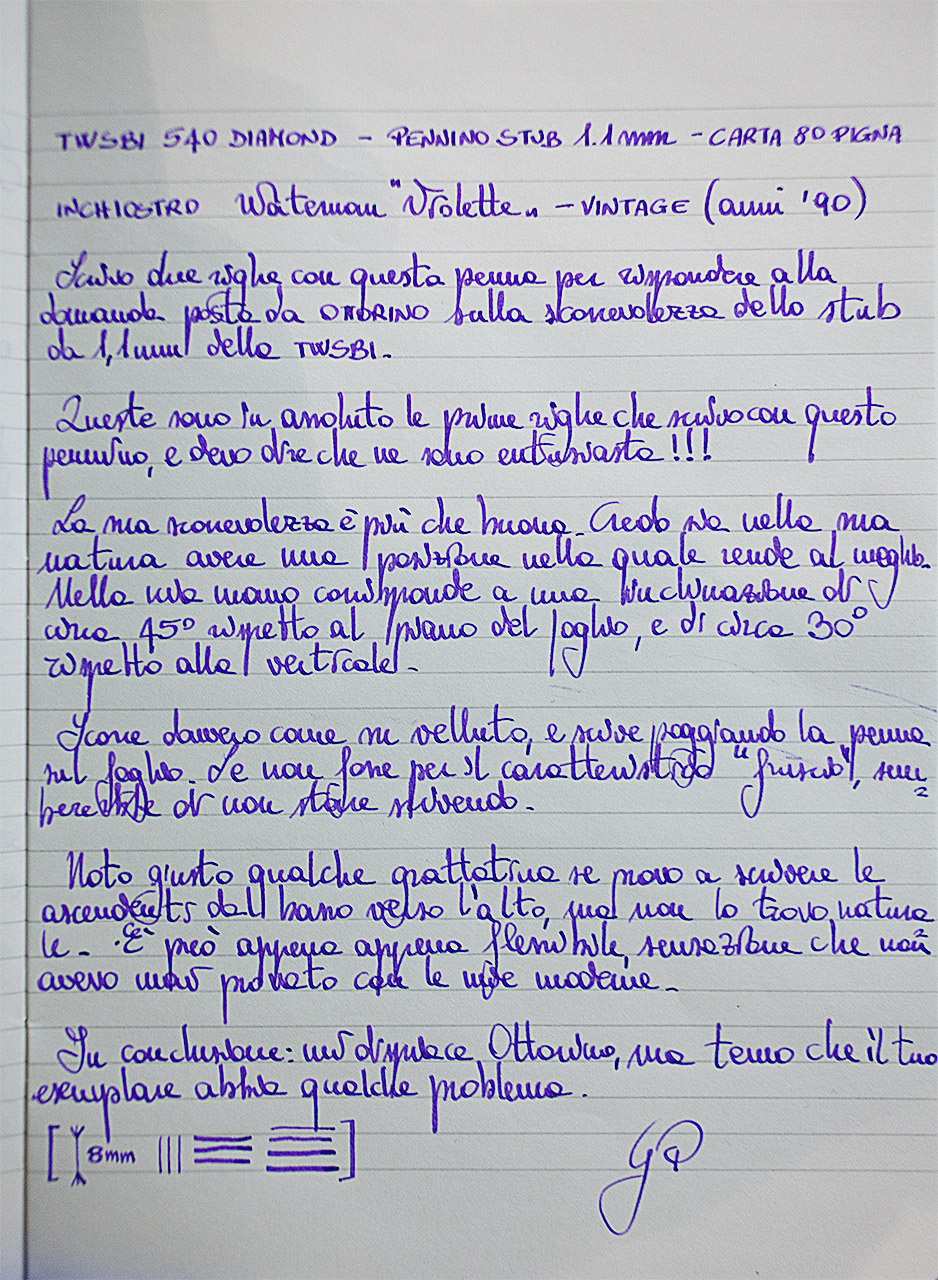 TWSBI 540 DIAMOND - PENNINO STUB 1.1 mm - CARTA 80 PIGNA
INCHIOSTRO Waterman "Violette" - VINTAGE (anni '90)
Scrivo due righe con questa penna per rispondere alla
domanda posta da OMBRINO sulla scorrevolezza dello stub
da 1,1mm della TWSBI.
Queste sono in assoluto le prime righe che scrivo con questo
pennino, e devo dire che ne sono entusiasta!!!
La sua scorrevolezza è più che buona. Credo sia nella sua
natura avere una posizione nella quale rende al meglio.
Nella mia mano corrisponde a una inclinazione di
circa 45° rispetto al piano del foglio, e di circa 30°
rispetto alla verticale.
Scorre davvero come su velluto, e scrive poggiando la penna
sul foglio. Se non fosse per il caratteristico "fruscio", sem=
bererebbe di non stare scrivendo.
Noto giusto qualche grattatina se provo a scrivere le
ascendenti dal basso verso l'alto, ma non lo trovo natura=
le. È però appena appena flessibile, sensazione che non
avevo mai provato con le mie moderne.
In conclusione: mi dispiace, ma temo che il tuo
esemplare abbia qualche problema.
[ 8mm ]
GP